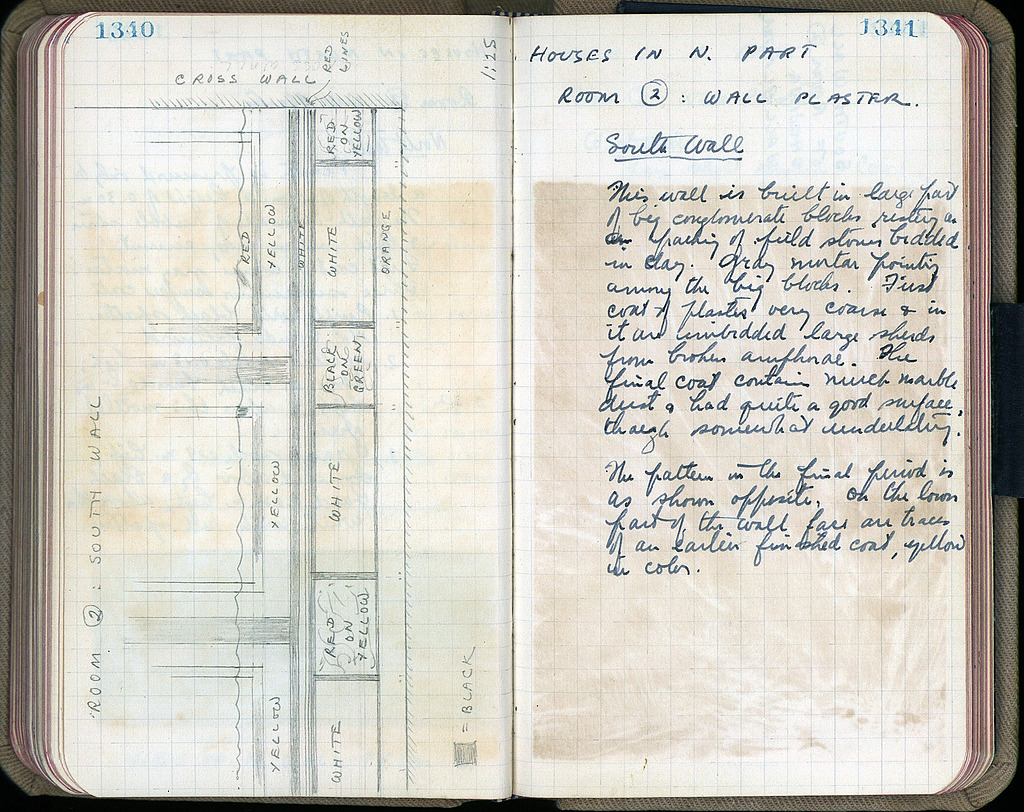 1340
CROSS WALL
RED
LINES
RED
ON
YELLOW
RED
YELLOW
WHITE
WHITE
ORANGE
BLACK
ON
GREEN
YELLOW
WHITE
RED
ON
YELLOW
YELLOW
WHITE
ROOM 2 : SOUTH WALL
= BLACK
1:25
1341
HOUSES IN N. PART
ROOM 2 : WALL PLASTER.
South Wall
This wall is built in large part
of big conglomerate blocks resting on
packing of field stones bedded
in clay. Gray mortar pointing
among the big blocks. First
coat of plaster very coarse & in
it are imbedded large sherds
from broken amphorae. The
final coat contains much marble
dust & had quite a good surface,
though somewhat undulating.
The pattern in the final period is
as shown opposite. On the lower
part of the wall face are traces
of an earlier finished coat, yellow
in color.